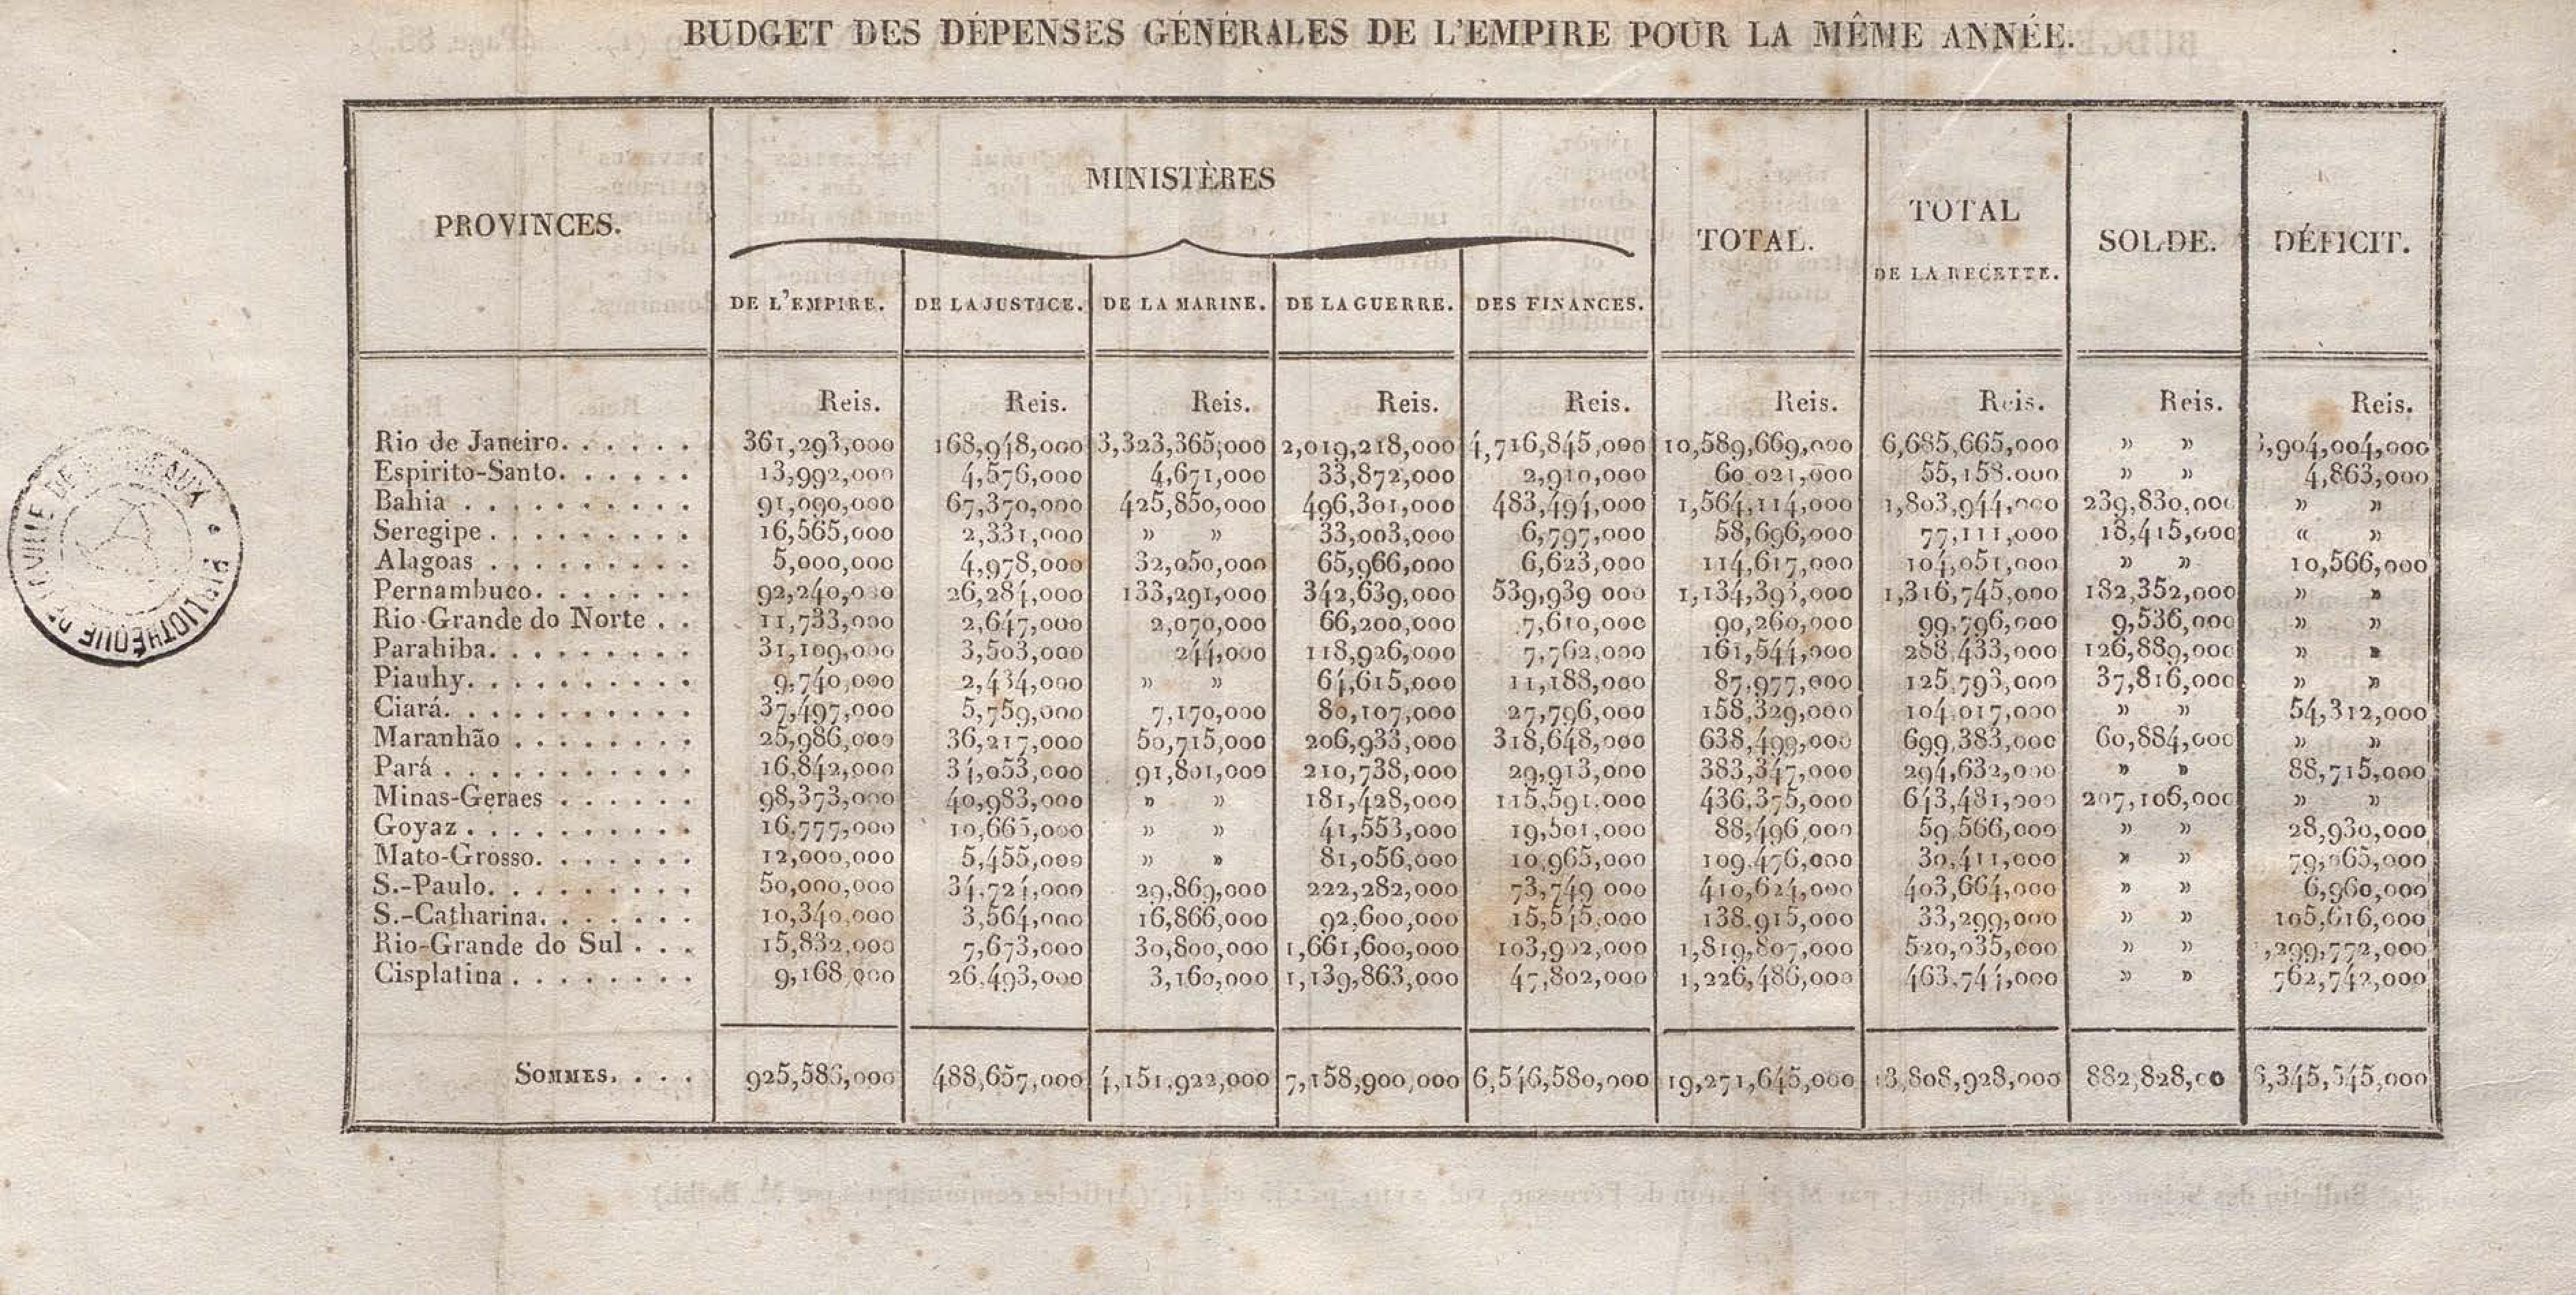 BUDGET DES DÉPENSES GÉNÉRALES DE L'EMPIRE POUR LA MÊME ANNÉE.
PROVINCES. MINISTÈRES TOTAL. TOTAL DE LA RECETTE. SOLDE. DÉFICIT.
DE L'EMPIRE. DE LA JUSTICE. DE LA MARINE. DE LA GUERRE. DES FINANCES.
Reis. Reis. Reis. Reis. Reis. Reis. Reis. Reis. Reis.
Rio de Janeiro. . . . . . 361,293,000 168,948,000 3,323,365,000 2,019,218,000 4,716,845,000 10,589,669,000 6,685,665,000 » » 3,904,004,000
Espirito-Santo. . . . . . 13,992,000 4,576,000 4,671,000 33,872,000 2,910,000 60,021,000 55,158.000 » » 4,863,000
Bahia . . . . . . . . . . 91,090,000 67,370,000 425,850,000 496,301,000 483,494,000 1,564,114,000 1,803,944,000 239,830,000 » »
Seregipe . . . . . . . . . 16,565,000 2,331,000 » » 33,003,000 6,797,000 58,696,000 77,111,000 18,415,000 « »
Alagoas . . . . . . . . . 5,000,000 4,978,000 32,050,000 65,966,000 6,623,000 114,617,000 104,051,000 » » 10,566,000
Pernambuco. . . . . . . 92,240,000 26,284,000 133,291,000 342,639,000 539,939 000 1,134,393,000 1,316,745,000 182,352,000 » »
Rio-Grande do Norte . . 11,733,000 2,647,000 2,070,000 66,200,000 7,610,000 90,260,000 99,796,000 9,536,000 » »
Parahiba. . . . . . . . . 31,109,000 3,503,000 244,000 118,926,000 7,762,000 161,544,000 288,433,000 126,889,000 » »
Piauhy. . . . . . . . . . 9,740,000 2,434,000 » » 64,615,000 11,188,000 87,977,000 125,793,000 37,816,000 » »
Ciará. . . . . . . . . . . 37,497,000 5,759,000 7,170,000 80,107,000 27,796,000 158,329,000 104,017,000 » » 54,312,000
Maranhão . . . . . . . . 25,986,000 36,217,000 50,715,000 206,933,000 318,648,000 638,499,000 699,383,000 60,884,000 » »
Pará . . . . . . . . . . . 16,842,000 34,053,000 91,801,000 210,738,000 29,913,000 383,347,000 294,632,000 » » 88,715,000
Minas-Geraes . . . . . . 98,373,000 40,983,000 » » 181,428,000 115,591,000 436,375,000 643,481,000 207,106,000 » »
Goyaz . . . . . . . . . . 16,777,000 10,665,000 » » 41,553,000 19,501,000 88,496,000 59,566,000 » » 28,930,000
Mato-Grosso. . . . . . . 12,000,000 5,455,000 » » 81,056,000 10,965,000 109,476,000 30,411,000 » » 79,065,000
S.-Paulo. . . . . . . . . 50,000,000 34,724,000 29,869,000 222,282,000 73,749 000 410,624,000 403,664,000 » » 6,960,000
S.-Catharina. . . . . . . 10,340,000 3,564,000 16,866,000 92,600,000 15,545,000 138,915,000 33,299,000 » » 105,616,000
Rio-Grande do Sul . . . 15,832,000 7,673,000 30,800,000 1,661,600,000 103,902,000 1,819,807,000 520,035,000 » » ,299,772,000
Cisplatina . . . . . . . . 9,168,000 26,493,000 3,160,000 1,139,863,000 47,802,000 1,226,486,000 463,744,000 » » 762,742,000
SOMMES. . . . 925,586,000 488,657,000 4,151,922,000 7,158,900,000 6,546,580,000 19,271,645,000 13,808,928,000 882,828,00 6,345,545,000
BIBLIOTHEQUE DE LA VILLE DE BORDEAUX